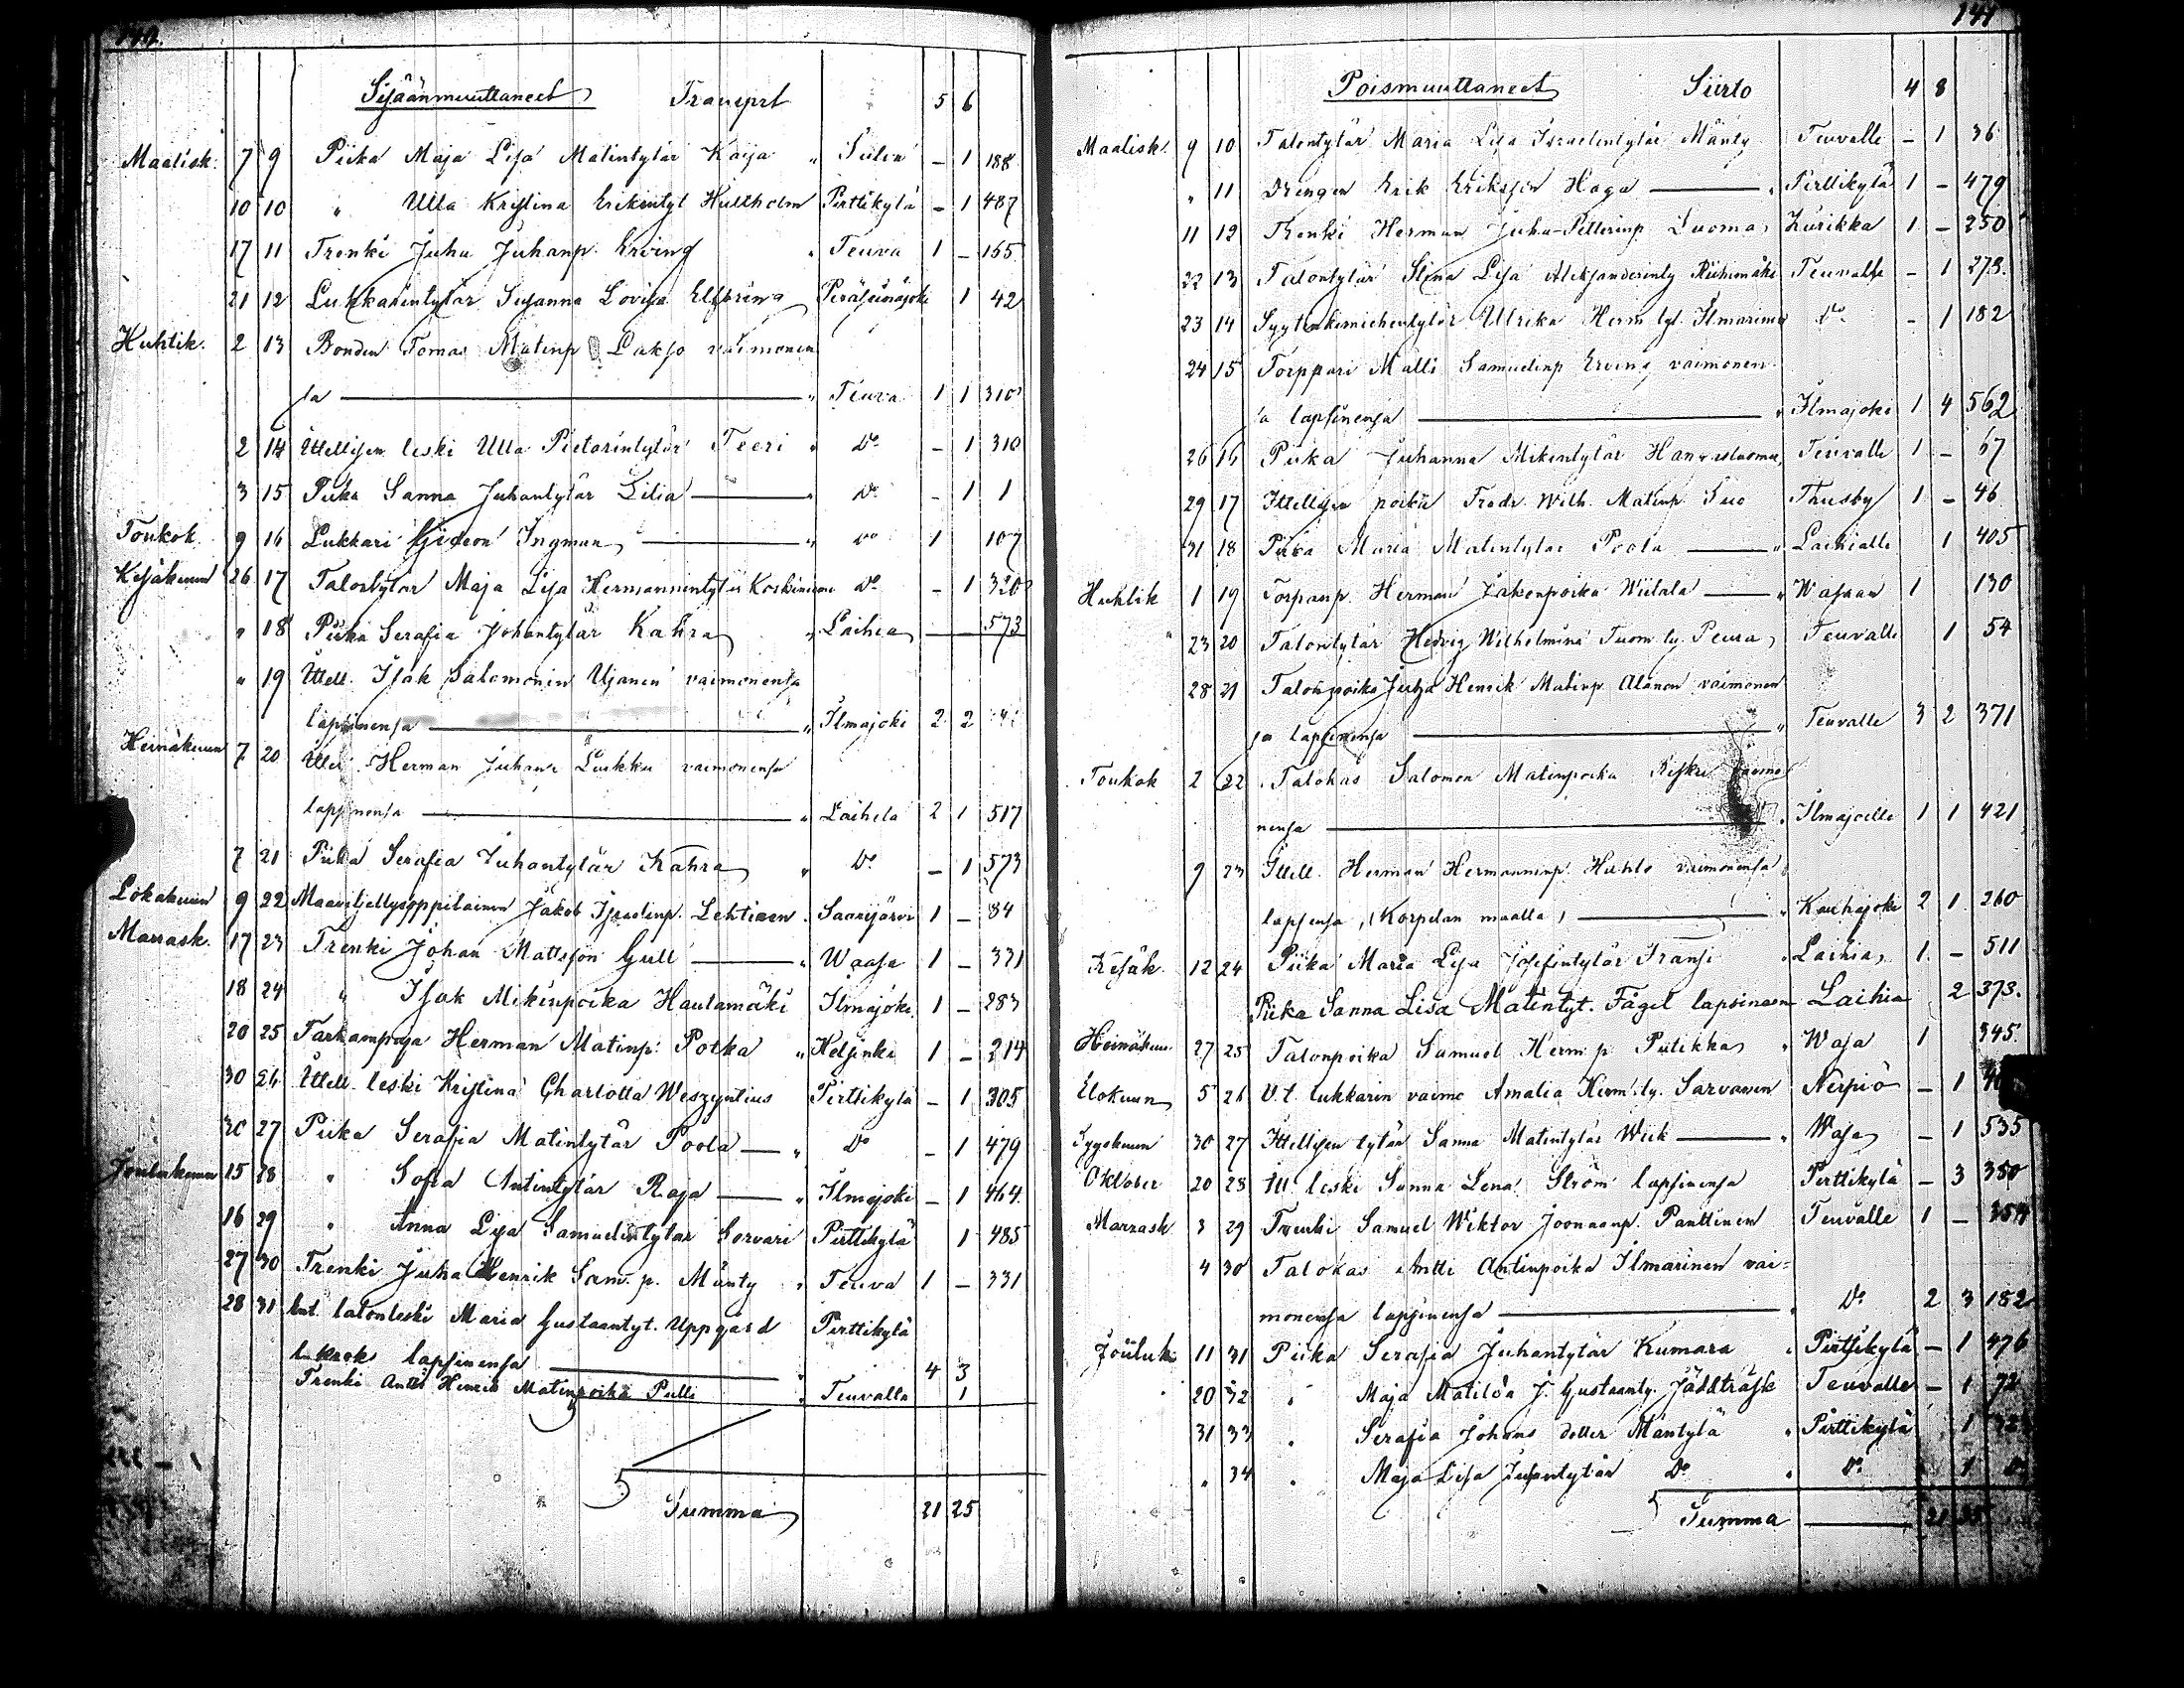 140.
Sisäänmuuttaneet Transprt 5 6
Maalisk. 7 9 Piika Maja Lisa Matintytär Kaija " Sulva – 1 188
10 10 " Ulla Kristina Erikintyt Hultholm Pirttikylä – 1 487
17 11 Trenki Juha Juhanp. Erving " Teuva 1 – 155
21 12 Lukkarintytär Susanna Lovisa Elfring Peräseinäjoki 1 42
Huhtik. 2 13 Bonden Tomas Matinp Lakso vaimonen
sa " Teuva 1 1 310
2 14 Ittellisen leski Ulla Pietarintytär Teeri " Do – 1 310
3 15 Piika Sanna Juhantytär Lilia " Do – 1 1
Toukok. 9 16 Lukkari Gideon Ingman " Do 1 107
Kesäkuun 26 17 Talontytär Maja Lisa Hermannintytär Koskinen Do – 1 320
" 18 Piika Serafia Johantytär Kahra " Laihia – – 573
" 19 Ittell. Isak Salomonin Ujanen vaimonensa
lapsinensa " Ilmajoki 2 2
Heinäkuun 7 20 Ittel. Herman Juhanp Luukku vaimonensa
lapsinensa " Laihela 2 1 517
7 21 Piika Serafia Juhantytär Kahra " Do – 1 573
Lokakuun 9 22 Maanviljellysoppilainen Jakob Israelinp. Lehtinen . Saarijärvi 1 – 84
Marrask. 17 23 Trenki Johan Mattsson Gull " Waasa 1 – 331
18 24 " Isak Mikinpoika Hautamäki Ilmajoki 1 – 283
20 25 Tarkampuja Herman Matinp: Potka " Helsinki 1 – 214
30 26 Ittell. leski Kristina Charlotta Weszyntius Pirttikylä – 1 305
30 27 Piika Serafia Matintytär Poola " Do – 1 479
Joulukuun 15 28 " Sofia Antintytär Raja " Ilmajoki – 1 464
16 29 " Anna Lisa Samuelintytär Sorvari Pirttikylä 1 485
27 30 Trenki Juha Henrik Sam. p. Mänty " Teuva 1 – 331
28 31 Ent. talonleski Maria Gustaantyt. Uppgård Pirttikylä
lapsinensa " 4 3
Trenki Antti Henrik Matinpoika Pulli " Teuvalla 1
Summa 21 25
141
Poismuuttaneet Siirto 4 8
Maalisk. 9 10 Talontytär Maria Lisa Israelintytär Mänty Teuvalle – 1 36
" 11 Drengen Erik Eriksson Haga " Pirttikylä 1 – 479
11 12 Trenki Herman Juha-Petterinp Luoma, Kurikka 1 – 250
22 13 Talontytär Stina Lisa Aleksanderinty Riihimäki Teuvalle – 1 273.
23 14 Syytinkimiehentytär Ulrika Herm. tyt. Ilmarinen Do – 1 182
24 15 Torppari Matti Samuelinp Erving vaimonen
sa lapsinensa " Ilmajoki 1 4 562
26 16 Piika Juhanna Mikintytär Hanvestuoma, Teuvalle 1 – 67
29 17 Ittellisen poika Fredr. Wilh. Matinp Suo Thusby 1 – 46
31 18 Piika Maria Matintytär Poola " Laihialle 1 405
Huhtik 1 19 Torparp. Herman Jakunpoika Wiitala " Wasaan 1 130
" 23 20 Talontytär Hedvig Wilhelmina Tuom. ty. Peura Teuvalle 1 54
28 21 Talonpoika Juha Henrik Matinp Alanen vaimonen
sa lapsinensa " Teuvalle 3 2 371
Toukok 2 22 Talokas Salomon Matinpoika Risku vaimo
nensa " Ilmajoelle 1 1 421
9 23 Ittell. Herman Hermanninp. Huhto vaimonensa
lapsensa, (Korpelan maalla) " Kauhajoki 2 1 260
Kesäk. 12 24 Piika Maria Lisa Josefintytär Fransi " Laihia 1. – 511
Piika Sanna Lisa Matintyt. Fågel lapsineen Laihia 2 373.
Heinäkuu 27 25 Talonpoika Samuel Herm. p. Piitikka " Wasa 1 345.
Elokuun 5 26 V. t. lukkarin vaimo Amalia Herm. ty. Sarvanen Närpiö – 1
Syyskuun 30 27 Ittellisen tytär Sanna Matintytär Wiik " Wasa – 1 535
Oktober 20 28 Itt leski Sanna Lena Ström lapsinensa Pirttikylä – 3 350
Marrask 3 29 Trenki Samuel Wiktor Joonaanp. Panttinen Teuvalle 1 – 354
4 30 Talokas Antti Antinpoika Ilmarinen vai=
monensa lapsinensa " Do 2 3 182
Jouluk. 11 31 Piika Serafia Juhantytär Kumara " Pirttikylä – 1 476
20 32 " Maja Matilda J. Gustaanty. Jäddträsk Teuvalle – 1 72
31 33 " Serafia Johans dotter Mäntylä " Pirttikylä 1
" 34 " Maja Lisa Juhantytär Do " Do 1 Do
Summa 21 35